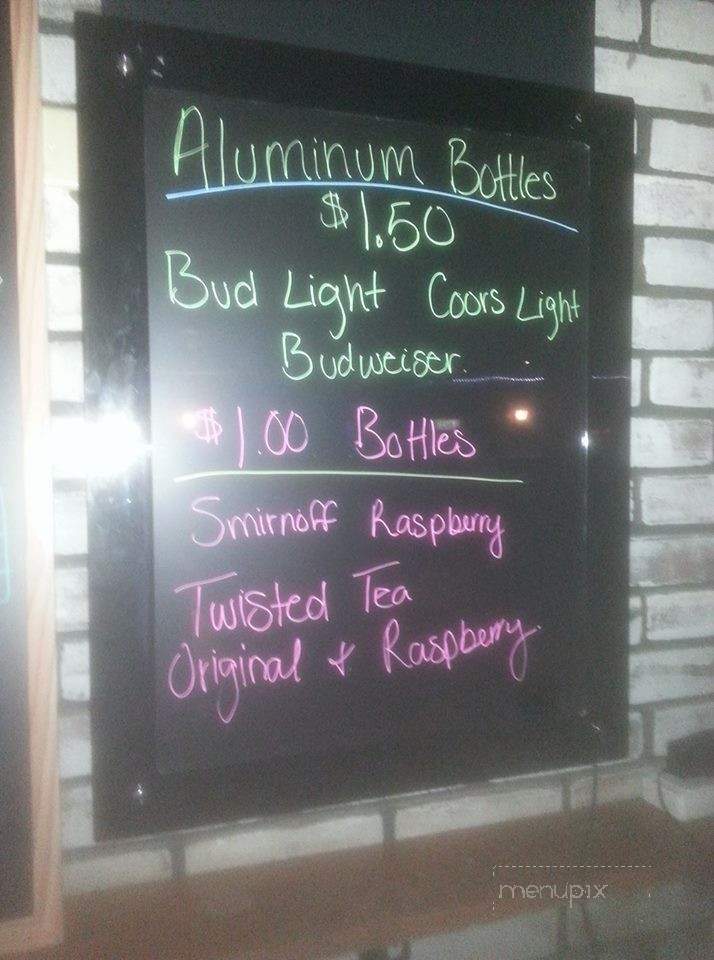 Aluminum Bottles
$1.50
Bud Light Coors Light
Budweiser
$1.00 Bottles
Smirnoff Raspberry
Twisted Tea
Original & Raspberry
menupix